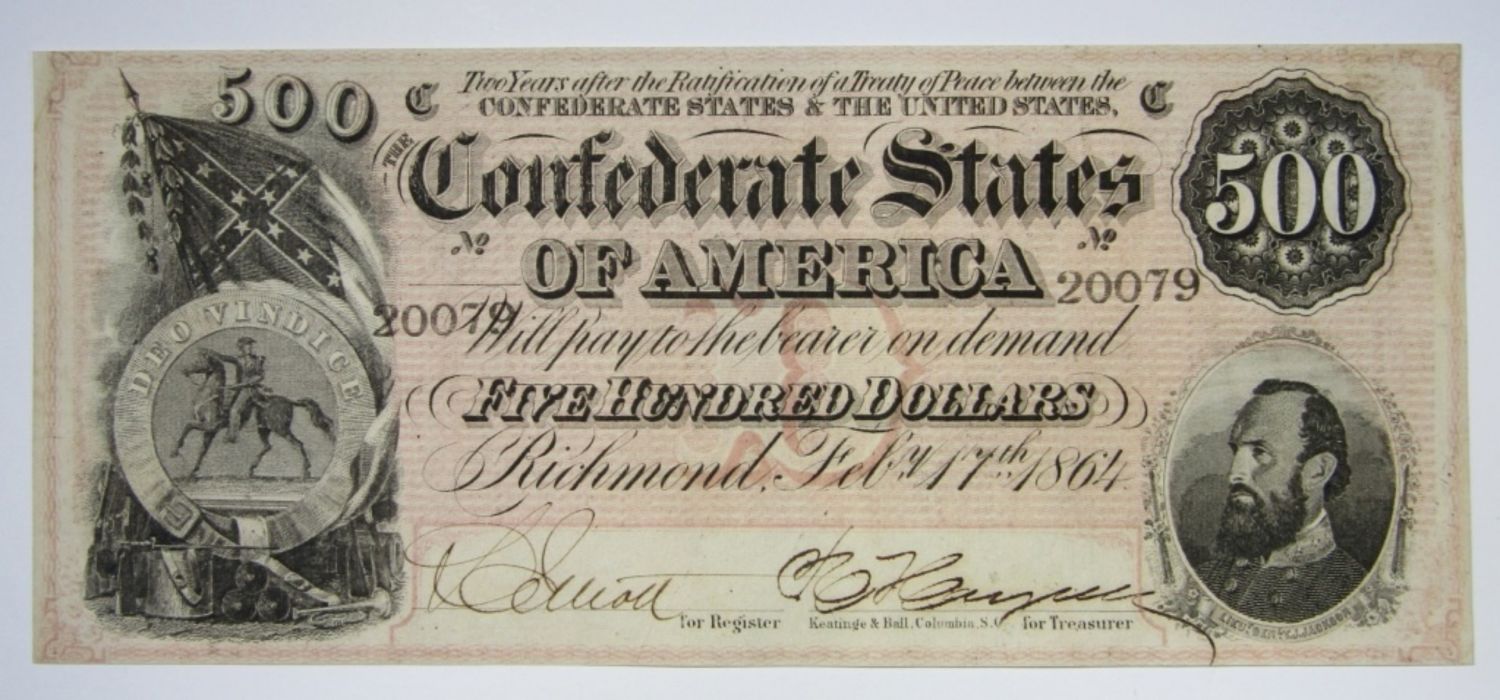 500
C Two Years after the Ratification of a Treaty of Peace between the C
CONFEDERATE STATES & THE UNITED STATES,
THE Confederate States
500
No OF AMERICA No
20079
20079
Will pay to the bearer on demand
DEO VINDICE
FIVE HUNDRED DOLLARS
Richmond, Feby 17th 1864
for Register
Keatinge & Ball, Columbia, S.C.
for Treasurer
LIEUT. GEN. T. J. JACKSON